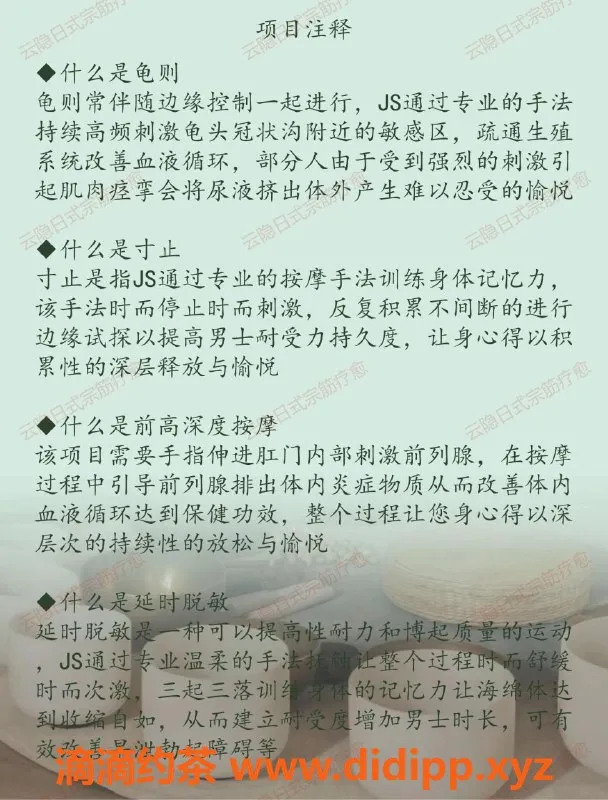 项目注释
◆什么是龟则
龟则常伴随边缘控制一起进行，JS通过专业的手法
持续高频刺激龟头冠状沟附近的敏感区，疏通生殖
系统改善血液循环，部分人由于受到强烈的刺激引
起肌肉痉挛会将尿液挤出体外产生难以忍受的愉悦
◆什么是寸止
寸止是指JS通过专业的按摩手法训练身体记忆力，
该手法时而停止时而刺激，反复积累不间断的进行
边缘试探以提高男士耐受力持久度，让身心得以积
累性的深层释放与愉悦
◆什么是前高深度按摩
该项目需要手指伸进肛门内部刺激前列腺，在按摩
过程中引导前列腺排出体内炎症物质从而改善体内
血液循环达到保健功效，整个过程让您身心得以深
层次的持续性的放松与愉悦
◆什么是延时脱敏
延时脱敏是一种可以提高性耐力和博起质量的运动
，JS通过专业温柔的手法 让整个过程时而舒缓
时而次激，三起三落训练身体的记忆力让海绵体达
到收缩自如，从而建立耐受度增加男士时长，可有
效改善 勃起障碍等
滴滴约茶 www.didipp.xyz
云隐日式宗筋疗愈